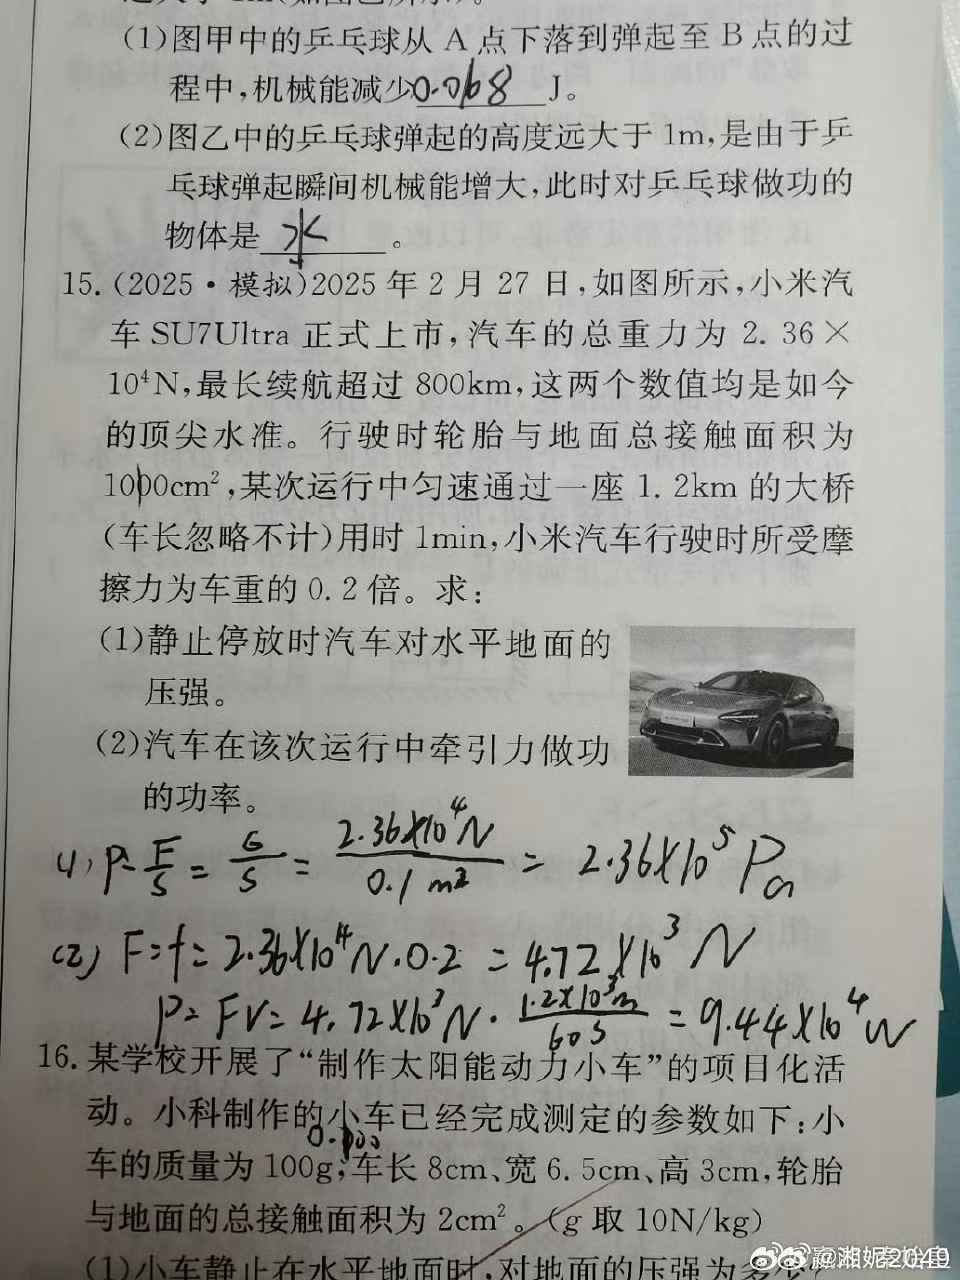 (1)图甲中的乒乓球从A点下落到弹起至B点的过
程中,机械能减少0.0168J。
(2)图乙中的乒乓球弹起的高度远大于1m,是由于乒
乓球弹起瞬间机械能增大,此时对乒乓球做功的
物体是 水 。
15.(2025·模拟)2025年2月27日,如图所示,小米汽
车SU7Ultra正式上市,汽车的总重力为2.36×
10⁴N,最长续航超过800km,这两个数值均是如今
的顶尖水准。行驶时轮胎与地面总接触面积为
1000cm²,某次运行中匀速通过一座1.2km的大桥
(车长忽略不计)用时1min,小米汽车行驶时所受摩
擦力为车重的0.2倍。求:
(1)静止停放时汽车对水平地面的
压强。
(2)汽车在该次运行中牵引力做功
的功率。
(1) P=F/S=G/S=2.36×10⁴N/0.1m²=2.36×10⁵Pa
(2) F=f=2.36×10⁴N·0.2=4.72×10³N
P=FV=4.72×10³N·1.2×10³m/60s=9.44×10⁴W
16.某学校开展了“制作太阳能动力小车”的项目化活
动。小科制作的小车已经完成测定的参数如下:小
车的质量为100g;车长8cm、宽6.5cm、高3cm,轮胎
与地面的总接触面积为2cm²。(g取10N/kg)
(1)小车静止在水平地面时,对地面的压强为多少